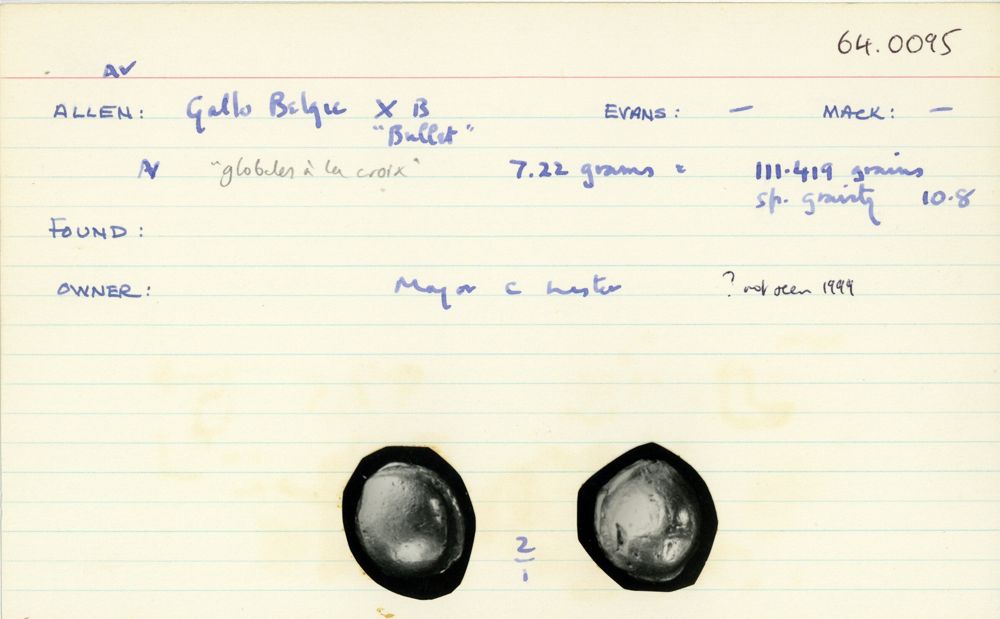 64.0095
AV
ALLEN: Gallo Belgic X B EVANS: — MACK: —
"Bullet"
N "globules à la croix" 7.22 grams = 111.419 grains
sp. gravity 10.8
FOUND:
OWNER: Major C Lester ? not seen 1999
2
1